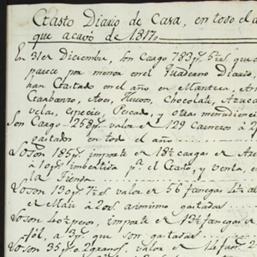 Gasto Diario de Casa, en todo el a
que acavó de 1817„
En 31„ Diciembre, son Cargo 783p„ 5 rel que
parece por menor en el Quaderno Diario
han Gastado en el año en Manteca, A
Garbanzo, Aros, Huevos, Chocolate, Azuca
vela, Especie, Pescado, y otras menudencia
Son Cargo 258p valor de 129 Carneros a
gastados en todo el año
Yd son 185p importe de 18½ cargas de A
a 10p para el Gasto, y venta, e
la Tienda
Yd son 130p valor de 56 fanegas
de Mais a gastadas
Yd son 40½ pesos, importe de 13½ fanegas
fol, a 3p que son gastadas
Yd son 35p 2 granos, valor de 14